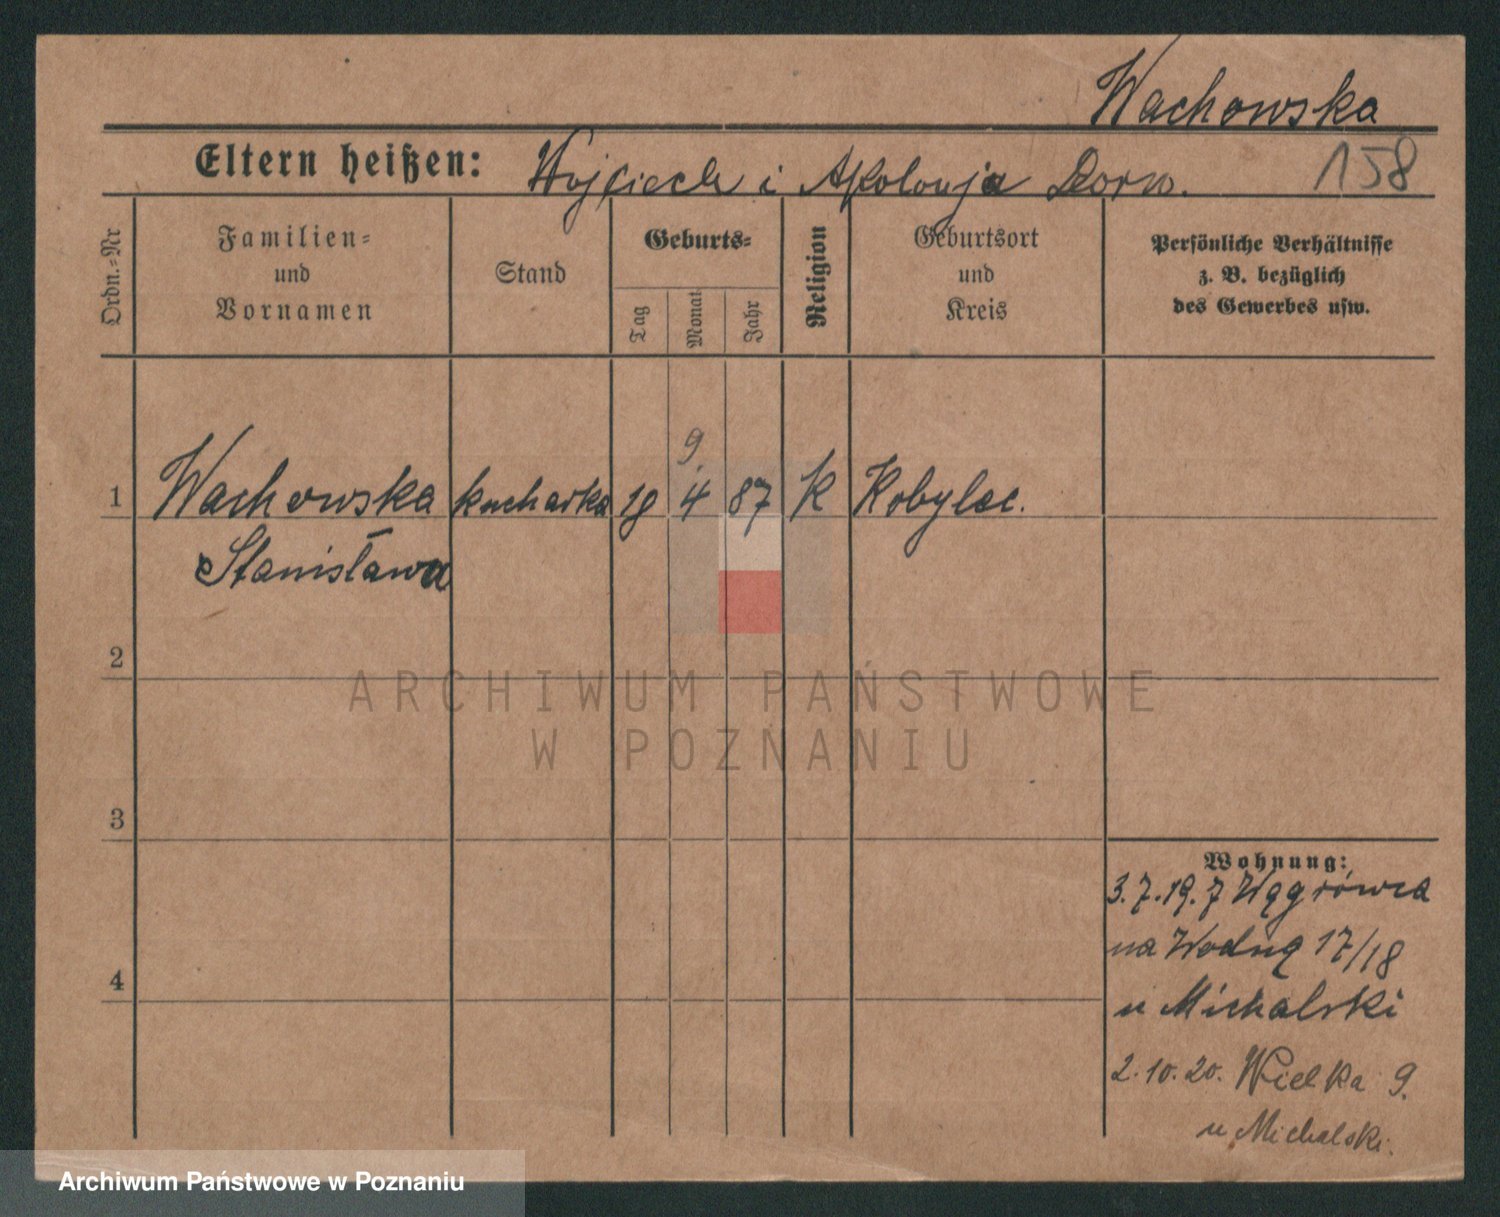 Wachowska
Eltern heißen: Wojciech i Apolonja Dorn.
158
Ordn.=Nr
Familien=
und
Vornamen
Stand
Geburts=
Tag
Monat
Jahr
Religion
Geburtsort
und
Kreis
Persönliche Verhältnisse
z. B. bezüglich
des Gewerbes usw.
9.
1 Wachowska kucharka 18 4 87 K Kobylec.
Stanisława
2
3
4
Wohnung:
3.7.19. z Wągrówca
na Wodną 17/18
u Michalski
2.10.20. Wielka 9.
u Michalski.
ARCHIWUM PAŃSTWOWE
W POZNANIU
Archiwum Państwowe w Poznaniu